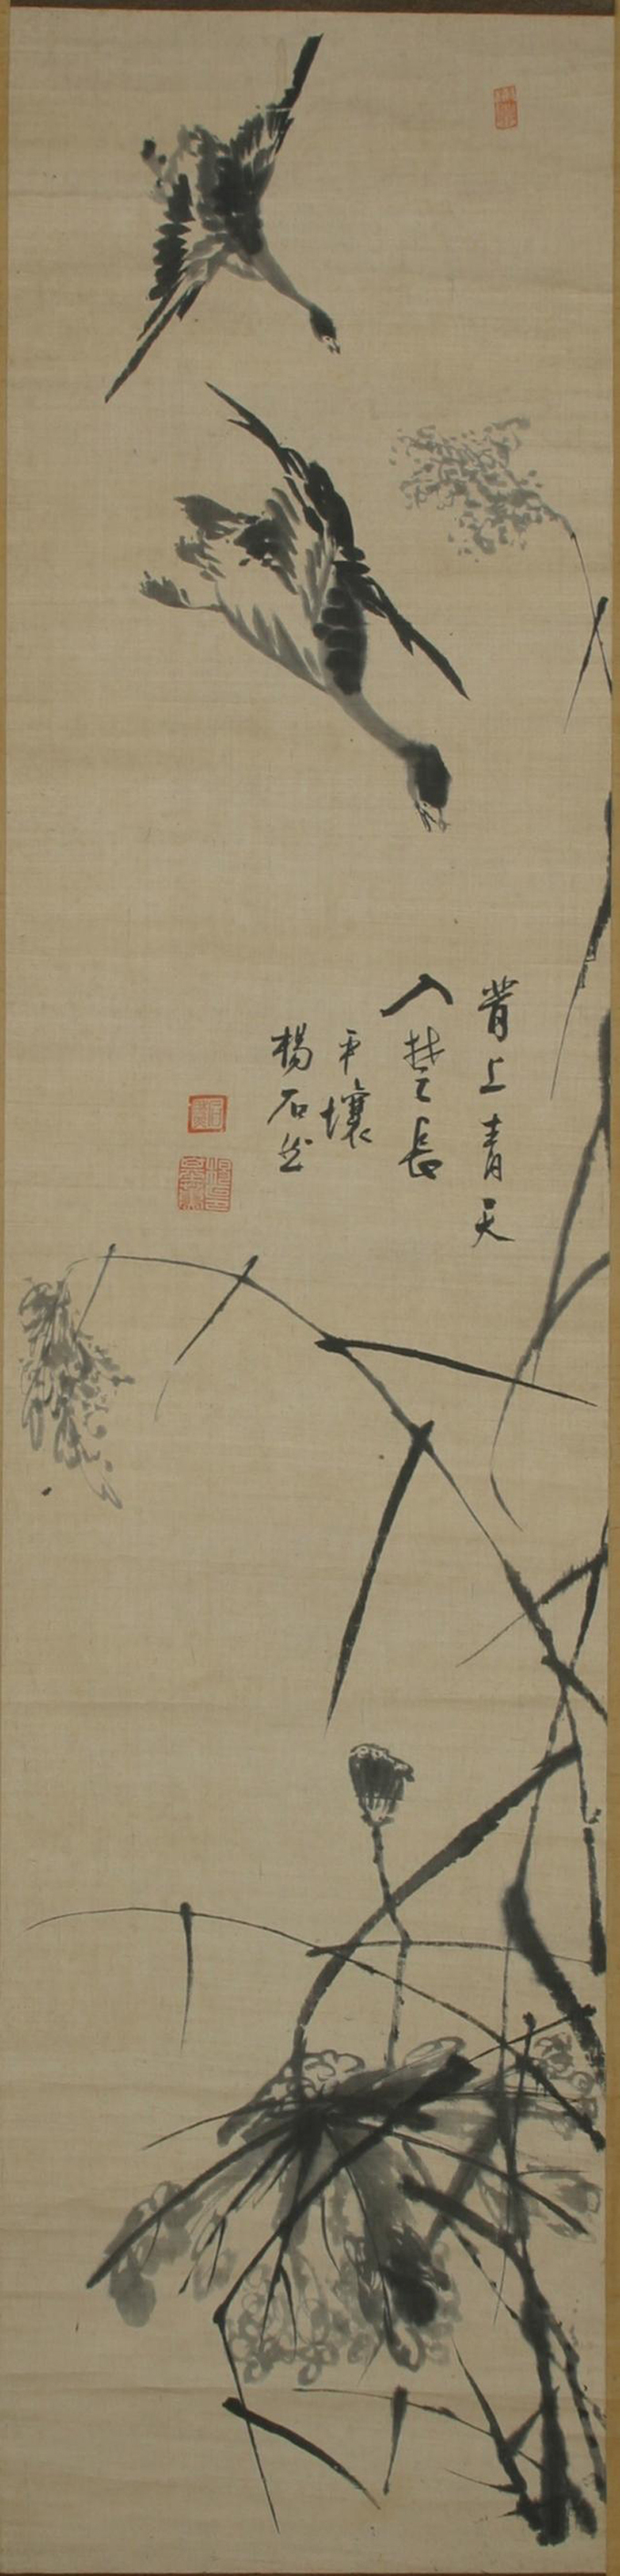 背上青天
入楚長
平壤
楊石然